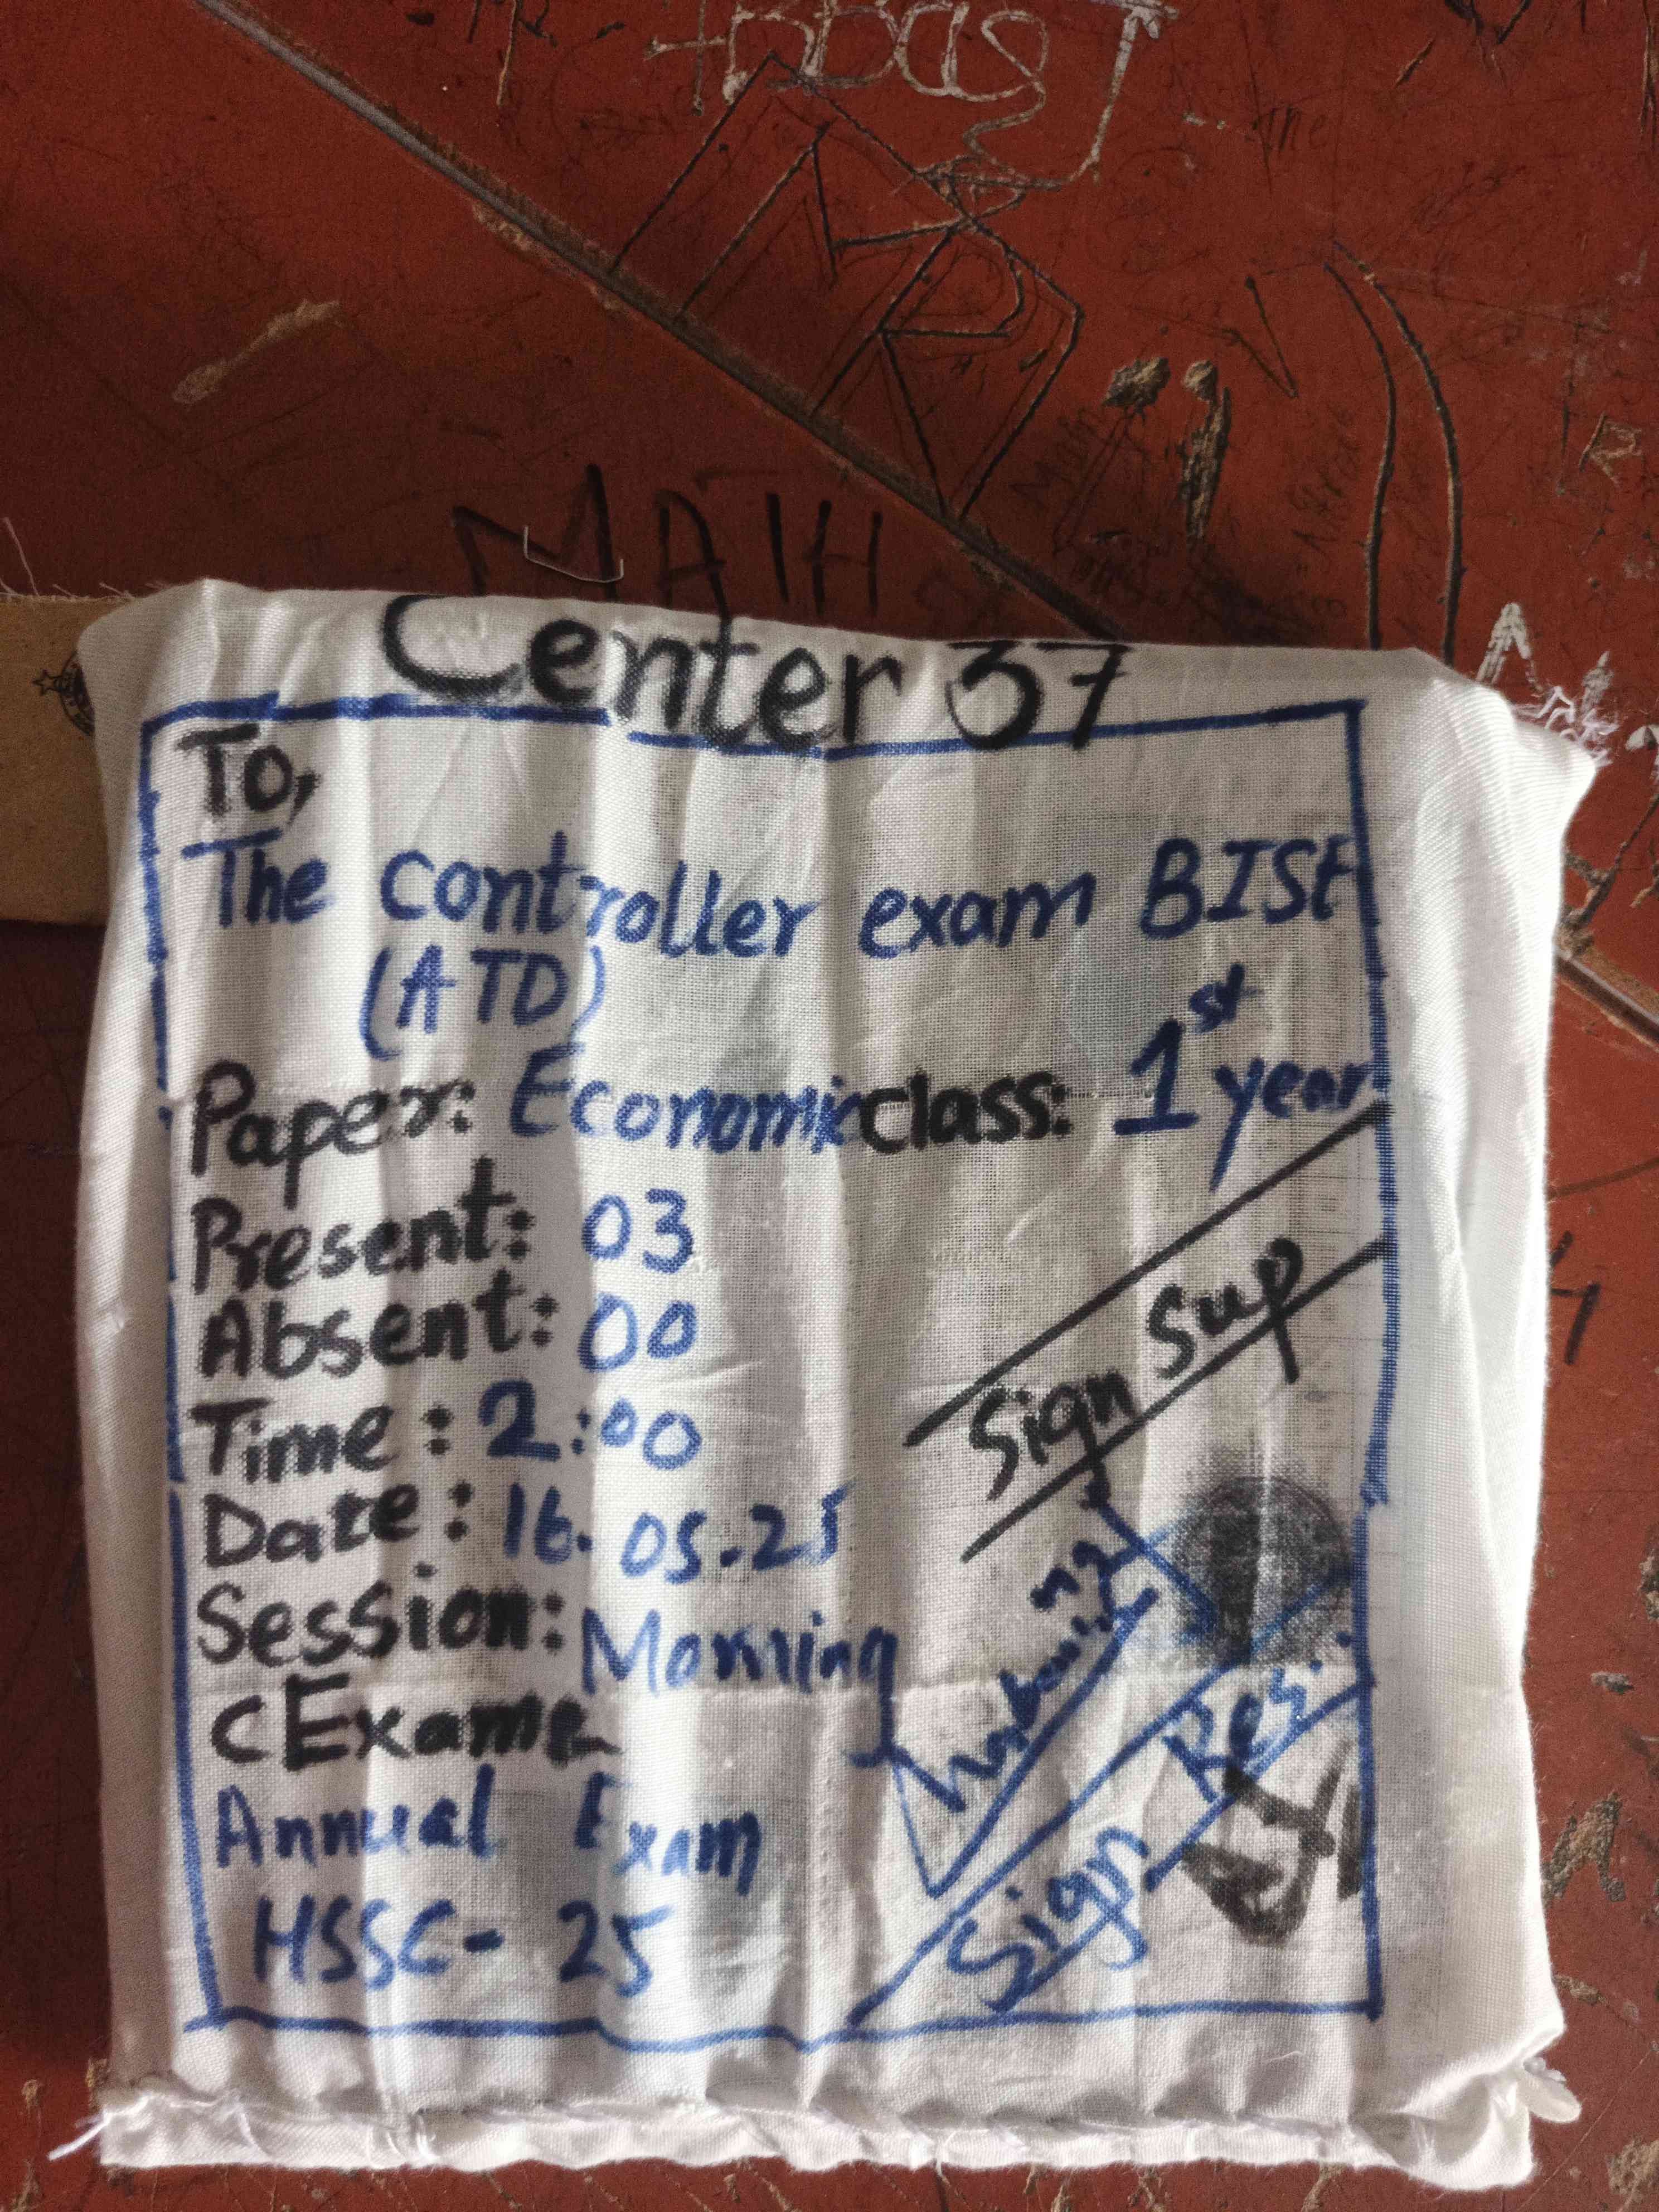 MATH
Center 37
To,
The controller exam BISE
(ATD)
Paper: Economic class: 1st year
Present: 03
Absent: 00
Time: 2:00
Date: 16-05-25
Session: Morning
Sign Sup
C Exame
Annual Exam
HSSC-25
Sign Res.